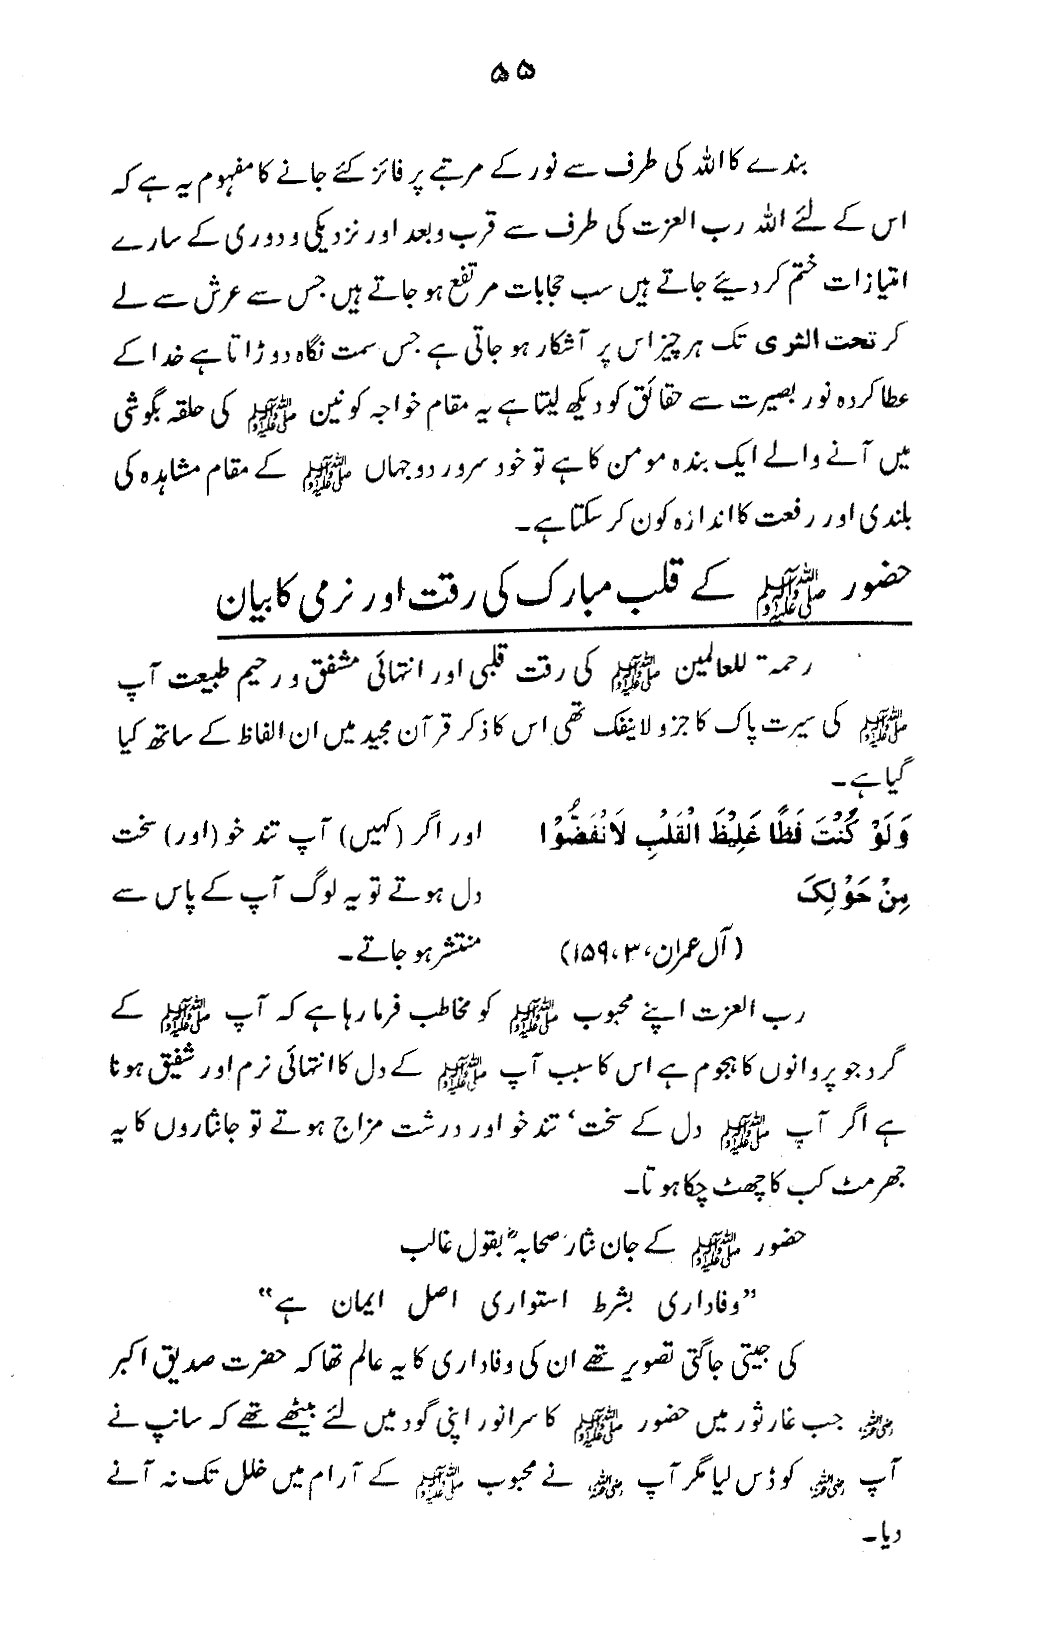 ۵۵
بندے کا اللہ کی طرف سے نور کے مرتبے پر فائز کئے جانے کا مفہوم یہ ہے کہ
اس کے لئے اللہ رب العزت کی طرف سے قرب و بعد اور نزدیکی و دوری کے سارے
امتیازات ختم کر دیئے جاتے ہیں سب حجابات مرتفع ہو جاتے ہیں جس سے عرش سے لے
کر تحت الثری تک ہر چیز اس پر آشکار ہو جاتی ہے جس سمت نگاہ دوڑاتا ہے خدا کے
عطا کردہ نور بصیرت سے حقائق کو دیکھ لیتا ہے یہ مقام خواجہ کونین ﷺ کی حلقہ بگوشی
میں آنے والے ایک بندہ مومن کا ہے تو خود سرور دوجہاں ﷺ کے مقام مشاہدہ کی
بلندی اور رفعت کا اندازہ کون کر سکتا ہے۔
حضور ﷺ کے قلب مبارک کی رقت اور نرمی کا بیان
رحمۃ للعالمین ﷺ کی رقت قلبی اور انتہائی مشفق و رحیم طبیعت آپ
ﷺ کی سیرت پاک کا جزو لاینفک تھی اس کا ذکر قرآن مجید میں ان الفاظ کے ساتھ کیا
گیا ہے۔
وَلَوْ كُنْتَ فَظًّا غَلِيْظَ الْقَلْبِ لَانْفَضُّوْا اور اگر (کہیں) آپ تند خو (اور) سخت
مِنْ حَوْلِکَ دل ہوتے تو یہ لوگ آپ کے پاس سے
(آل عمران، ۳، ۱۵۹) منتشر ہو جاتے۔
رب العزت اپنے محبوب ﷺ کو مخاطب فرما رہا ہے کہ آپ ﷺ کے
گرد جو پروانوں کا ہجوم ہے اس کا سبب آپ ﷺ کے دل کا انتہائی نرم اور شفیق ہونا
ہے اگر آپ ﷺ دل کے سخت، تند خو اور درشت مزاج ہوتے تو جانثاروں کا یہ
جھرمٹ کب کا چھٹ چکا ہوتا۔
حضور ﷺ کے جان نثار صحابہؓ بقول غالب
”وفاداری بشرط استواری اصل ایمان ہے“
کی جیتی جاگتی تصویر تھے ان کی وفاداری کا یہ عالم تھا کہ حضرت صدیق اکبر
رضی اللہ عنہ جب غار ثور میں حضور ﷺ کا سر انور اپنی گود میں لئے بیٹھے تھے کہ سانپ نے
آپ رضی اللہ عنہ کو ڈس لیا مگر آپ رضی اللہ عنہ نے محبوب ﷺ کے آرام میں خلل تک نہ آنے
دیا۔